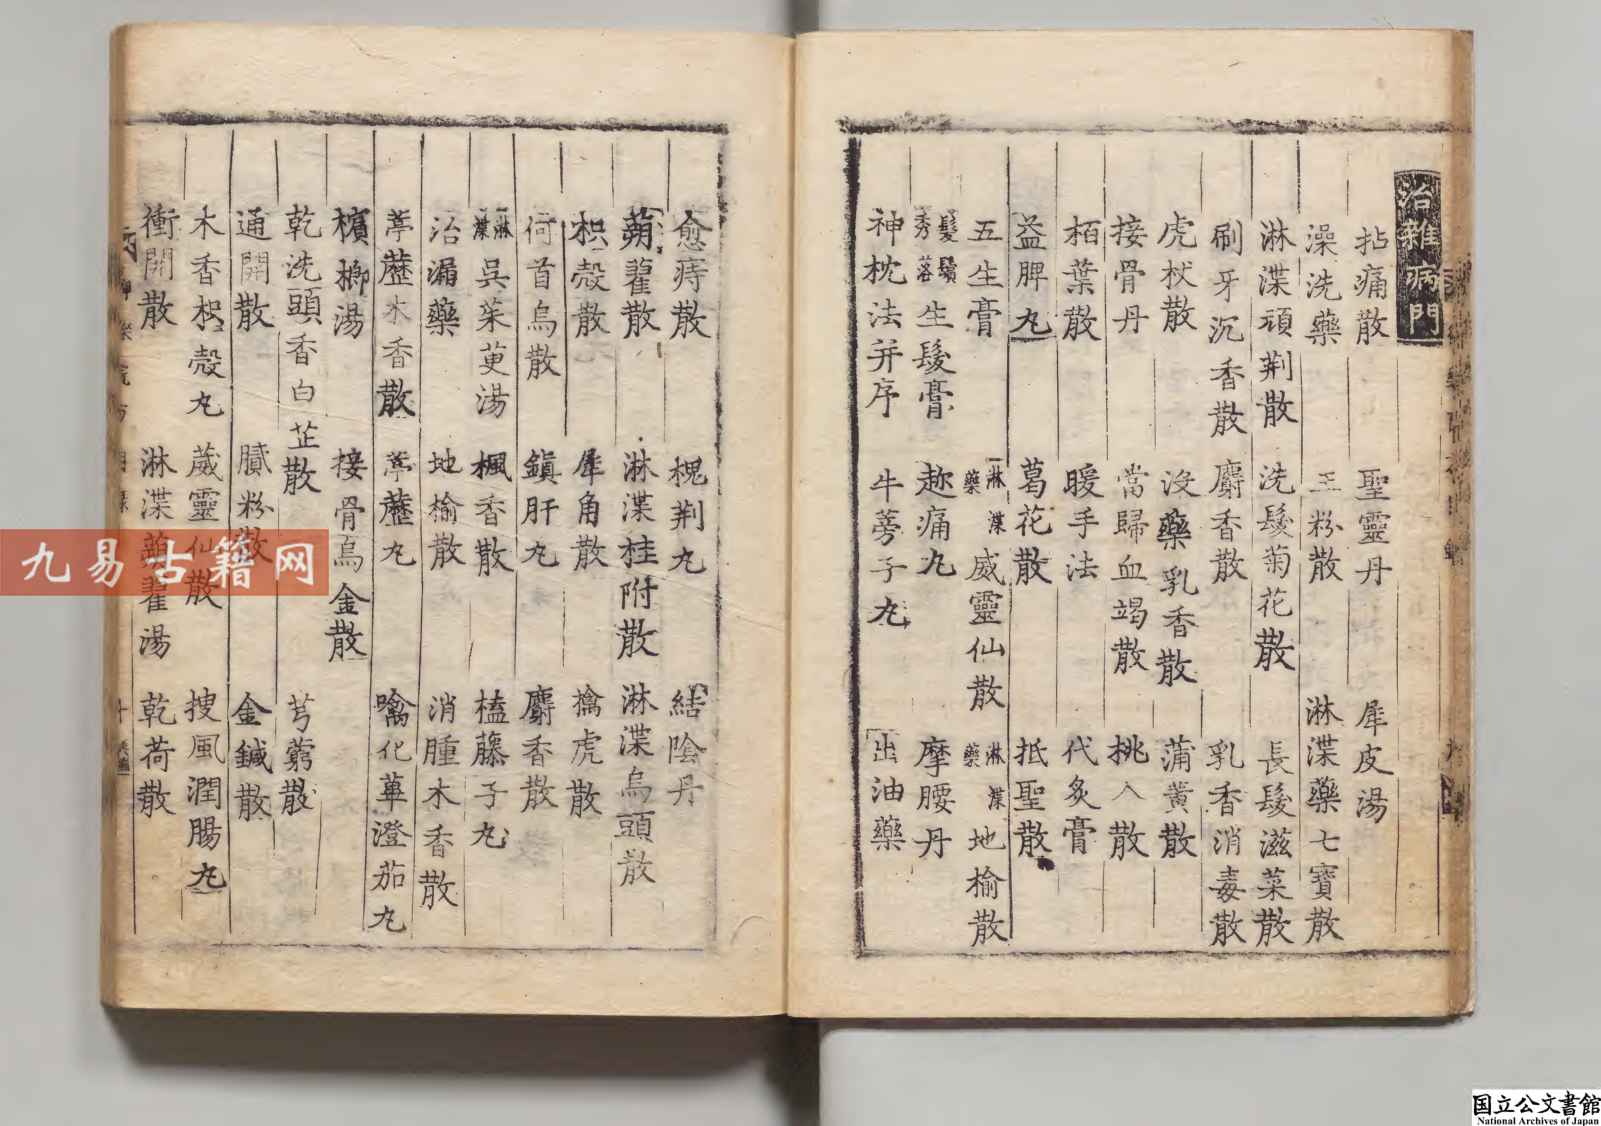 治雜病門
拈痛散 聖靈丹 犀皮湯
澡洗藥 玉粉散 淋渫藥七寶散
淋渫頑荆散 洗髮菊花散 長髮滋菜散
刷牙沉香散 麝香散 乳香消毒散
虎杖散 沒藥乳香散 蒲黄散
接骨丹 當歸血竭散 桃人散
栢葉散 暖手法 代灸膏
益脾丸 葛花散 抵聖散
五生膏 淋渫藥威靈仙散 淋渫藥地榆散
髮鬚秀落生髮膏 趂痛丸 摩腰丹
神枕法并序 牛蒡子丸 出油藥
愈痔散 槐荆丸 結陰丹
蒴藋散 淋渫桂附散 淋渫烏頭散
枳殼散 犀角散 擒虎散
何首烏散 鎮肝丸 麝香散
淋渫吳茱萸湯 楓香散 榼藤子丸
治漏藥 地榆散 消腫木香散
葶藶木香散 葶藶丸 噙化蓽澄茄丸
檳榔湯 接骨烏金散
乾洗頭香白芷散 芎藭散
通開散 膩粉散 金鍼散
木香枳殼丸 葳靈仙散 捜風潤腸丸
衝開散 淋渫蒴藋湯 乾荷散
九易古籍网
国立公文書館
National Archives of Japan